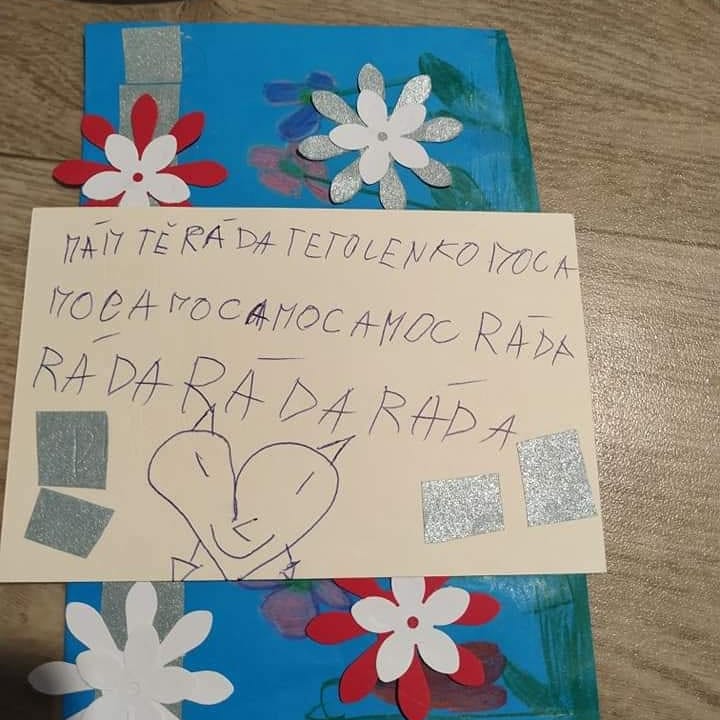 MÁM TĚ RÁDA TETOLENKO MOC A
MOC A MOC A MOC A MOC RÁDA
RÁDA RÁDA RÁDA